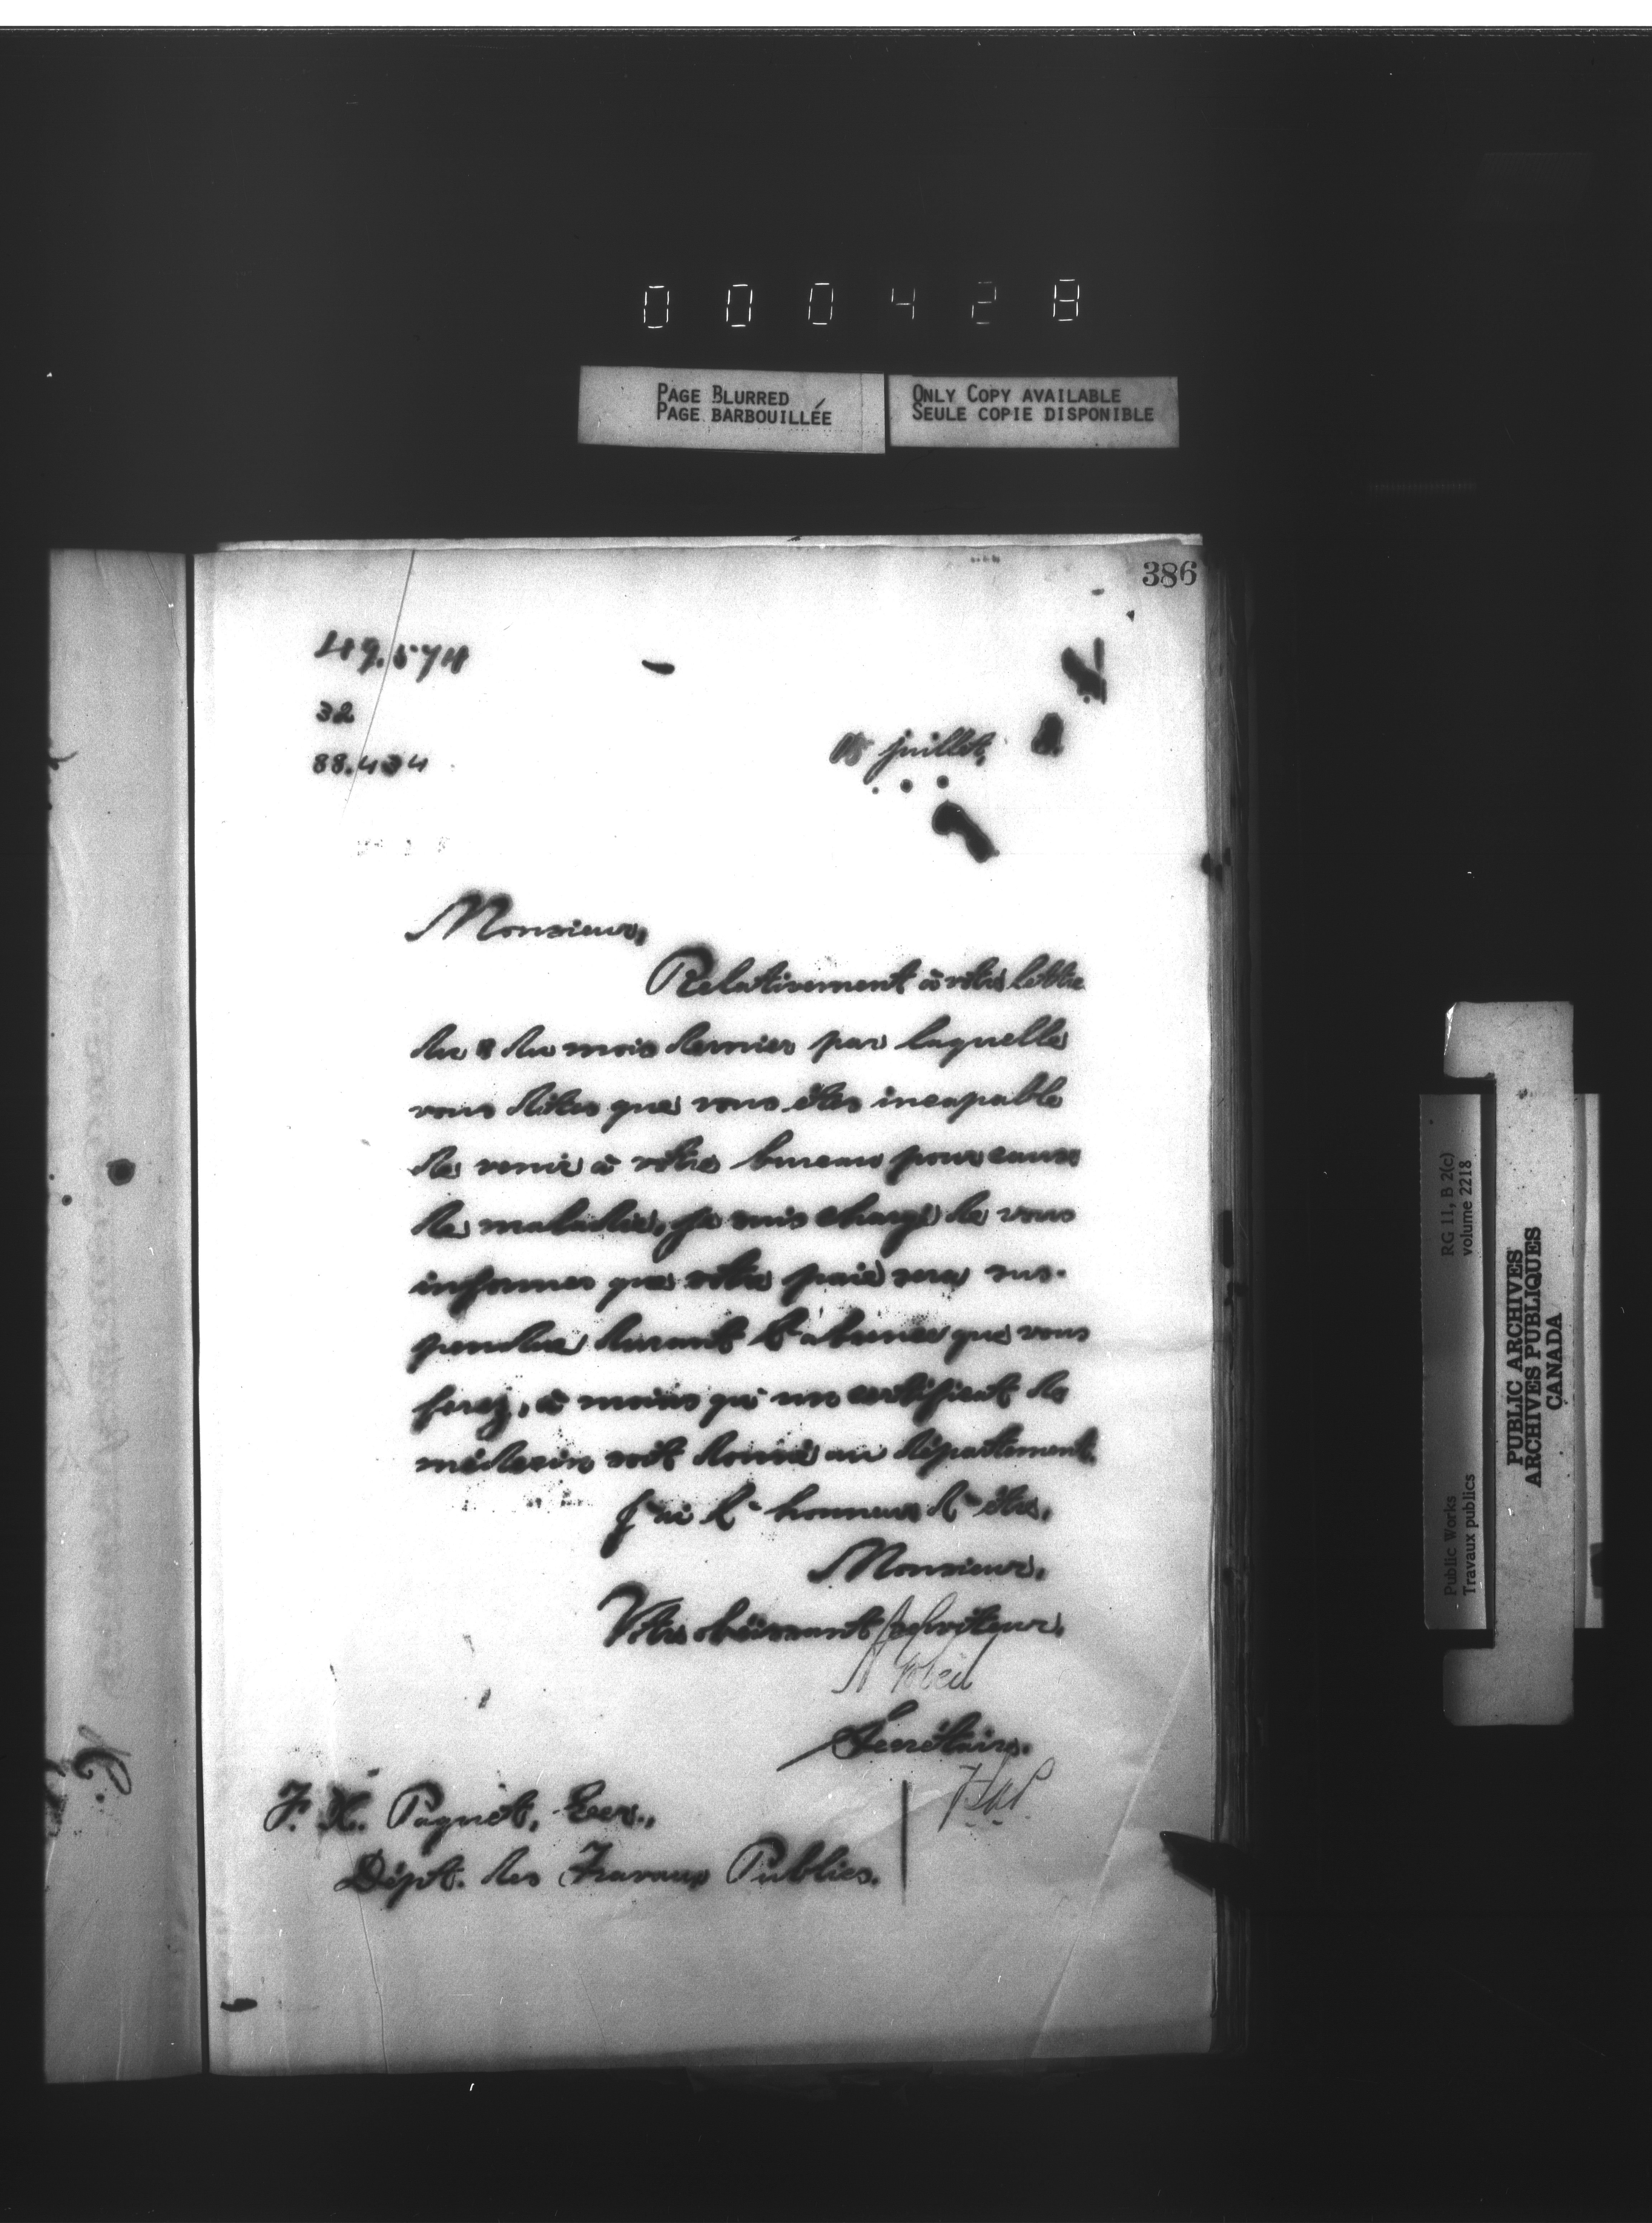 000428
PAGE BLURRED
PAGE BARBOUILLÉE
ONLY COPY AVAILABLE
SEULE COPIE DISPONIBLE
386
49.574
32
88.434
juillet,
Monsieur,
Relativement à votre lettre
du 8 du mois dernier par laquelle
vous dites que vous êtes incapable
de venir à votre bureau pour cause
de maladie, je suis chargé de vous
informer que votre paie sera sus-
pendue durant l'absence que vous
ferez, à moins qu'un certificat de
médecin soit donné au département.
J'ai l'honneur d'être,
Monsieur,
Votre obéissant serviteur,
Secrétaire.
F. X. Paquet, Ecr.,
Dépt. des Travaux Publics.
RG 11, B 2(c)
volume 2218
Public Works
Travaux publics
PUBLIC ARCHIVES
ARCHIVES PUBLIQUES
CANADA